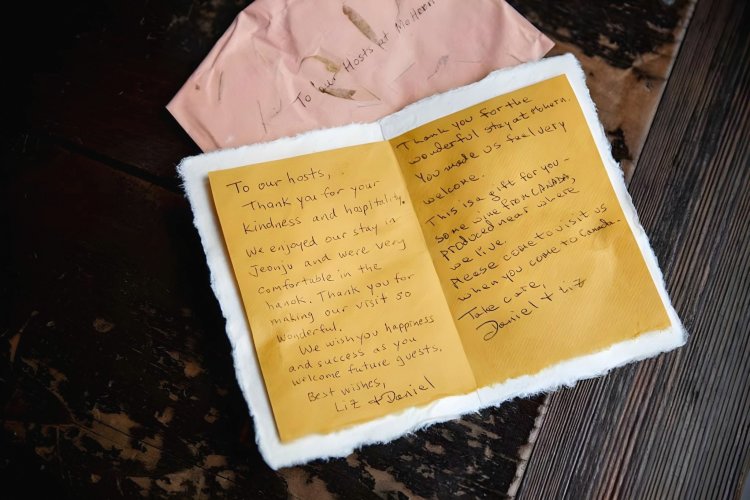 To our Hosts at Mohern
To our hosts,
Thank you for your
kindness and hospitality.
We enjoyed our stay in
Jeonju and were very
comfortable in the
hanok. Thank you for
making our visit so
wonderful.
We wish you happiness
and success as you
welcome future guests.
Best wishes,
Liz + Daniel
Thank you for the
wonderful stay at Mohern.
You made us feel very
welcome.
This is a gift for you -
some wine from CANADA,
produced near where
we live.
Please come to visit us
when you come to Canada.
Take care,
Daniel + Liz